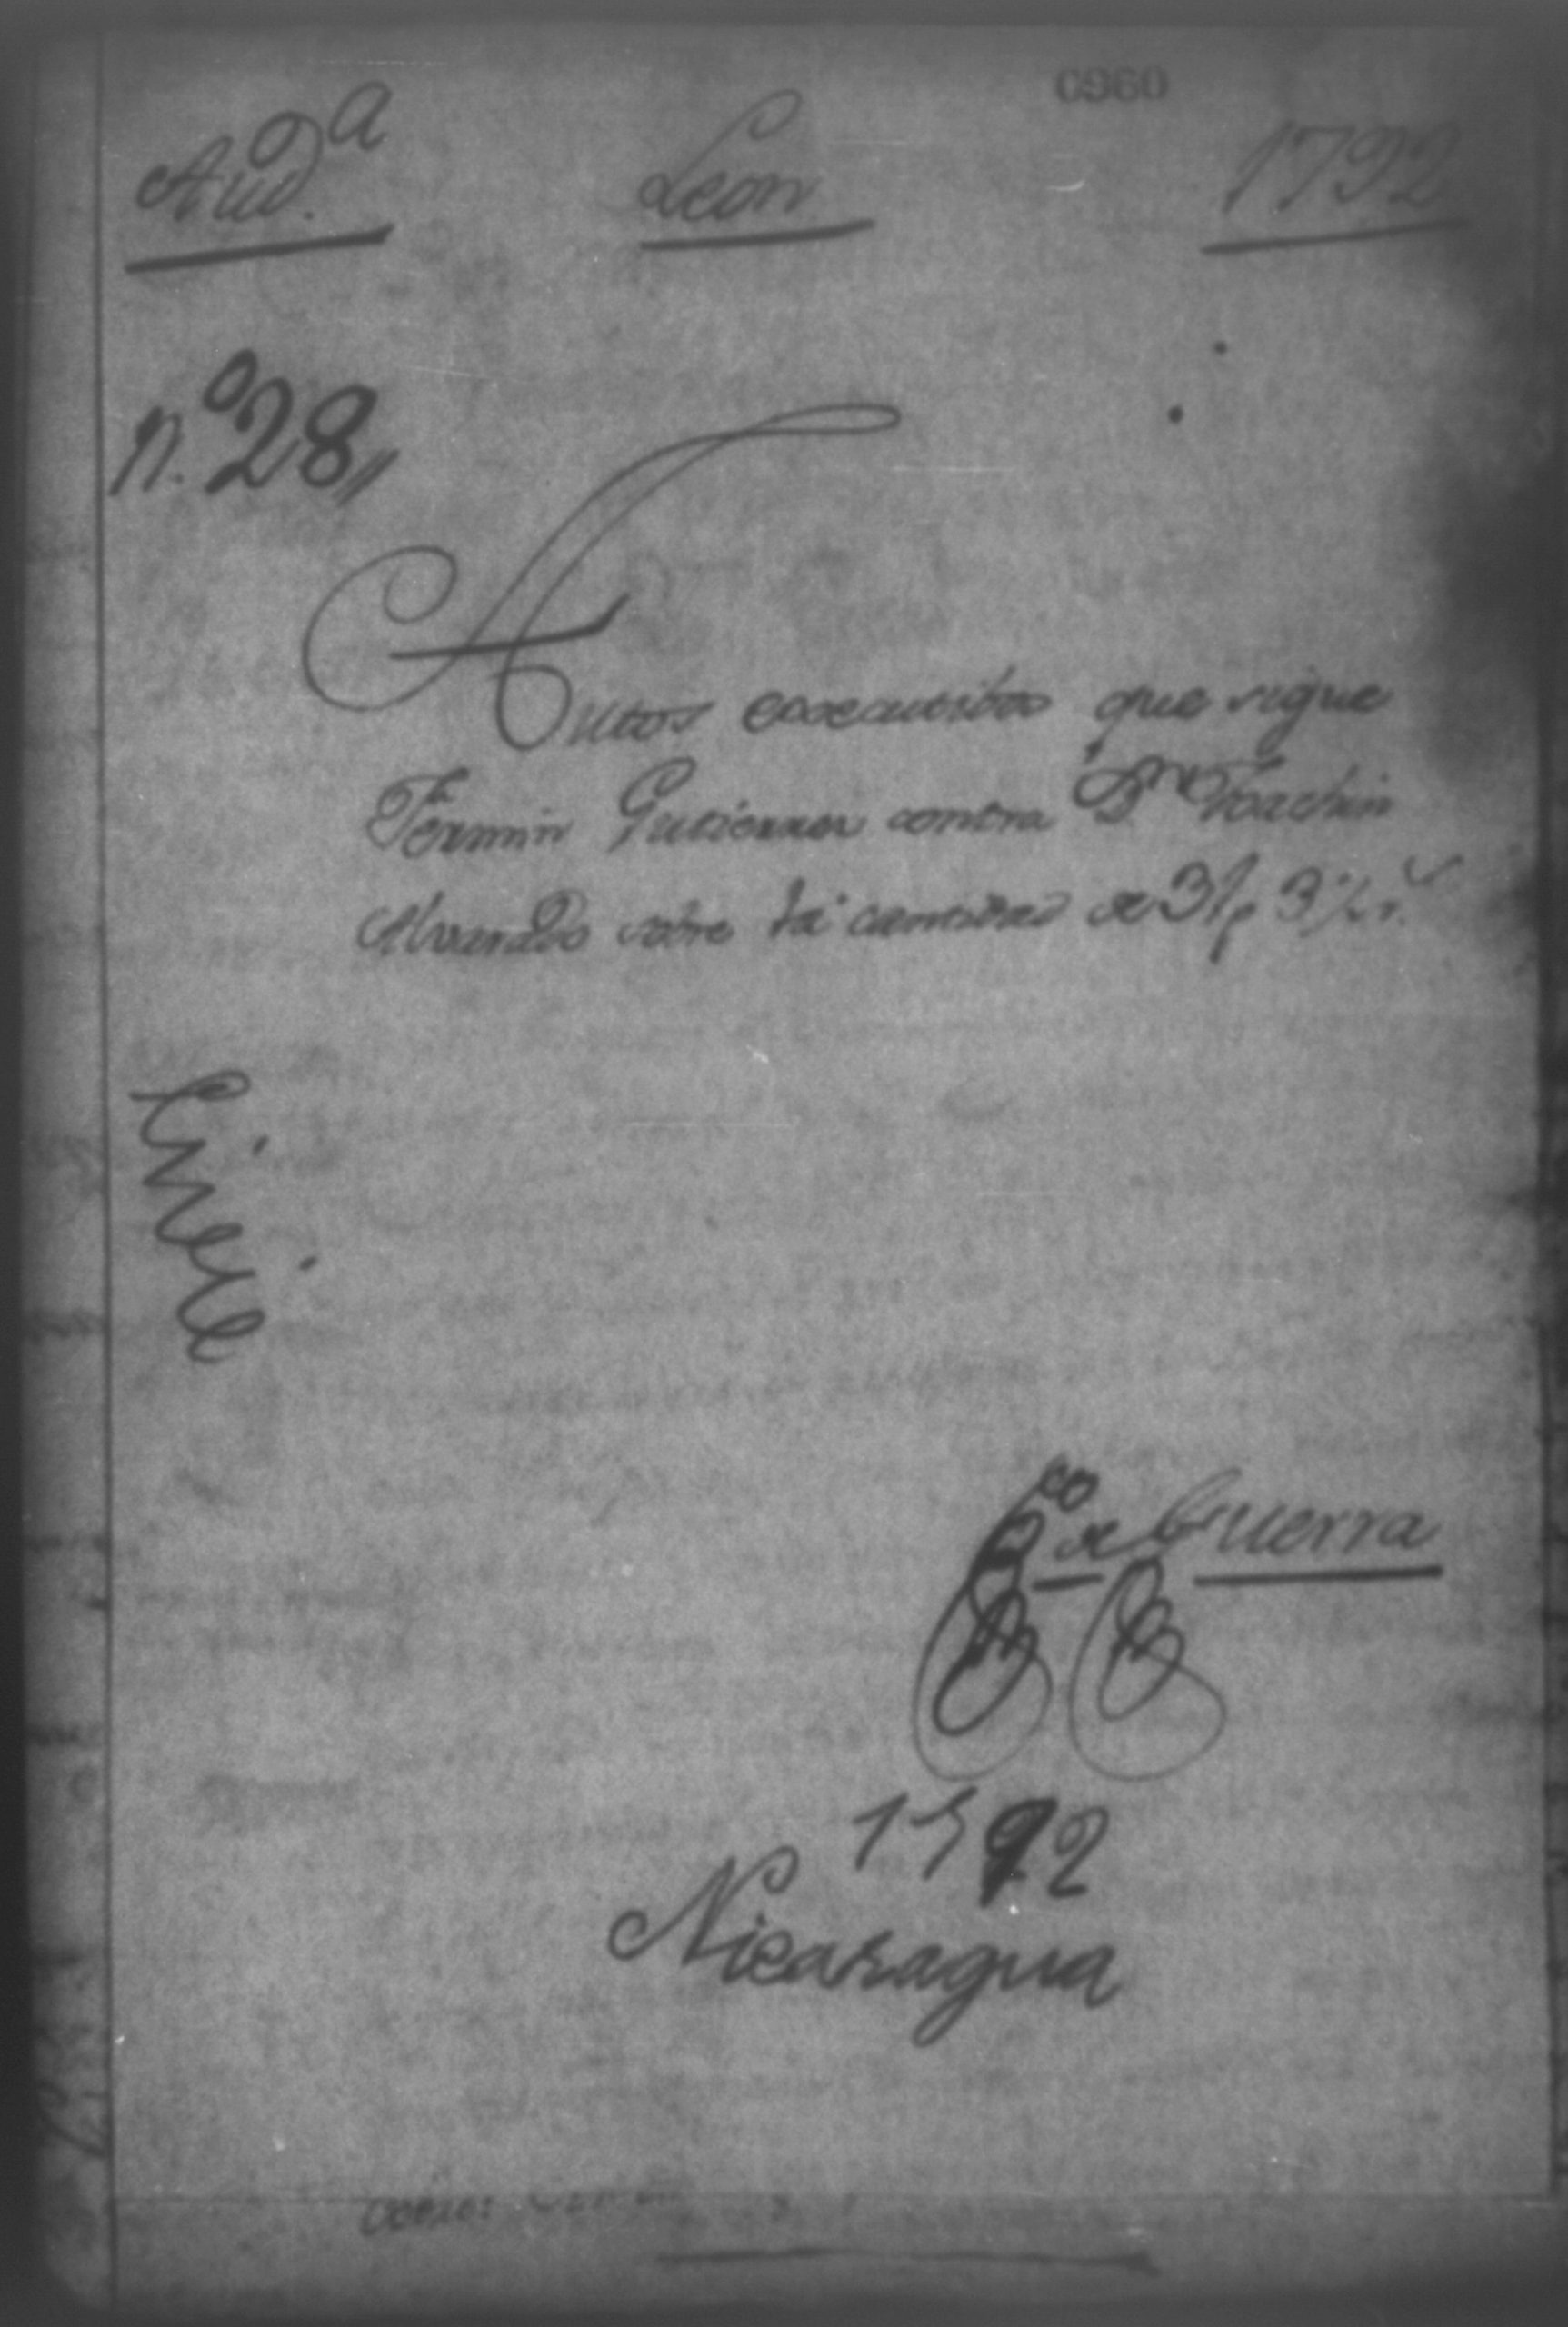 0960
Aud.ª Leon 1792
N.º 28,,
Autos executibos que sigue
Fermin Gutierrez contra Dn Joachin
Alvarado sobre la cantidad de 31 p 3 1/2 r.s
Civil
de Guerra
1792
Nicaragua